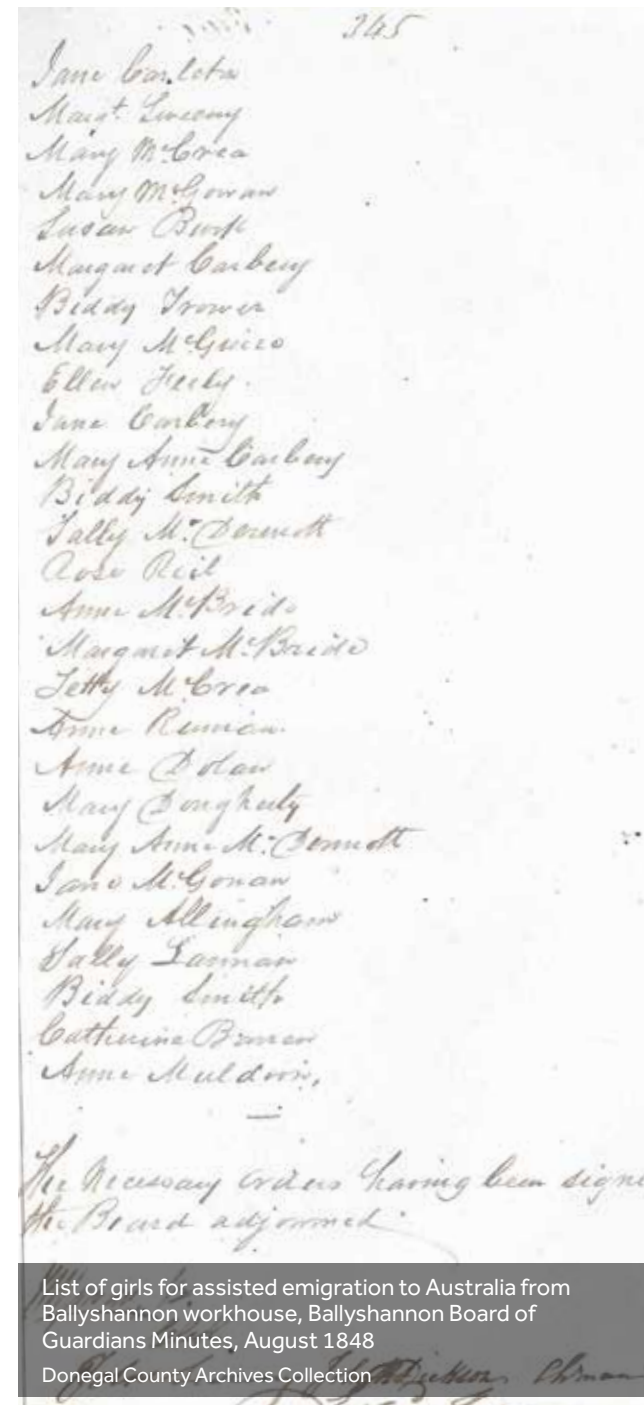 345
Jane Carleton
Margt. Sweeny
Mary McCrea
Mary McGowan
Susan Burk
Margaret Carbery
Biddy Trower
Mary McGuire
Ellen Feely.
Jane Carbery
Mary Anne Carbery
Biddy Smith
Sally McDermott
Rose Reil
Anne McBride
Margaret McBride
Letty McCrea
Anne
Anne Dolan
Mary Dougherty
Mary Anne McDermott
Jane McGowan
Mary Allingham
Sally Lannan
Biddy Smith
Catherine
Anne Muldoon,
The Necessary orders having been signe
the Board adjourned
List of girls for assisted emigration to Australia from
Ballyshannon workhouse, Ballyshannon Board of
Guardians Minutes, August 1848
Donegal County Archives Collection
Chman